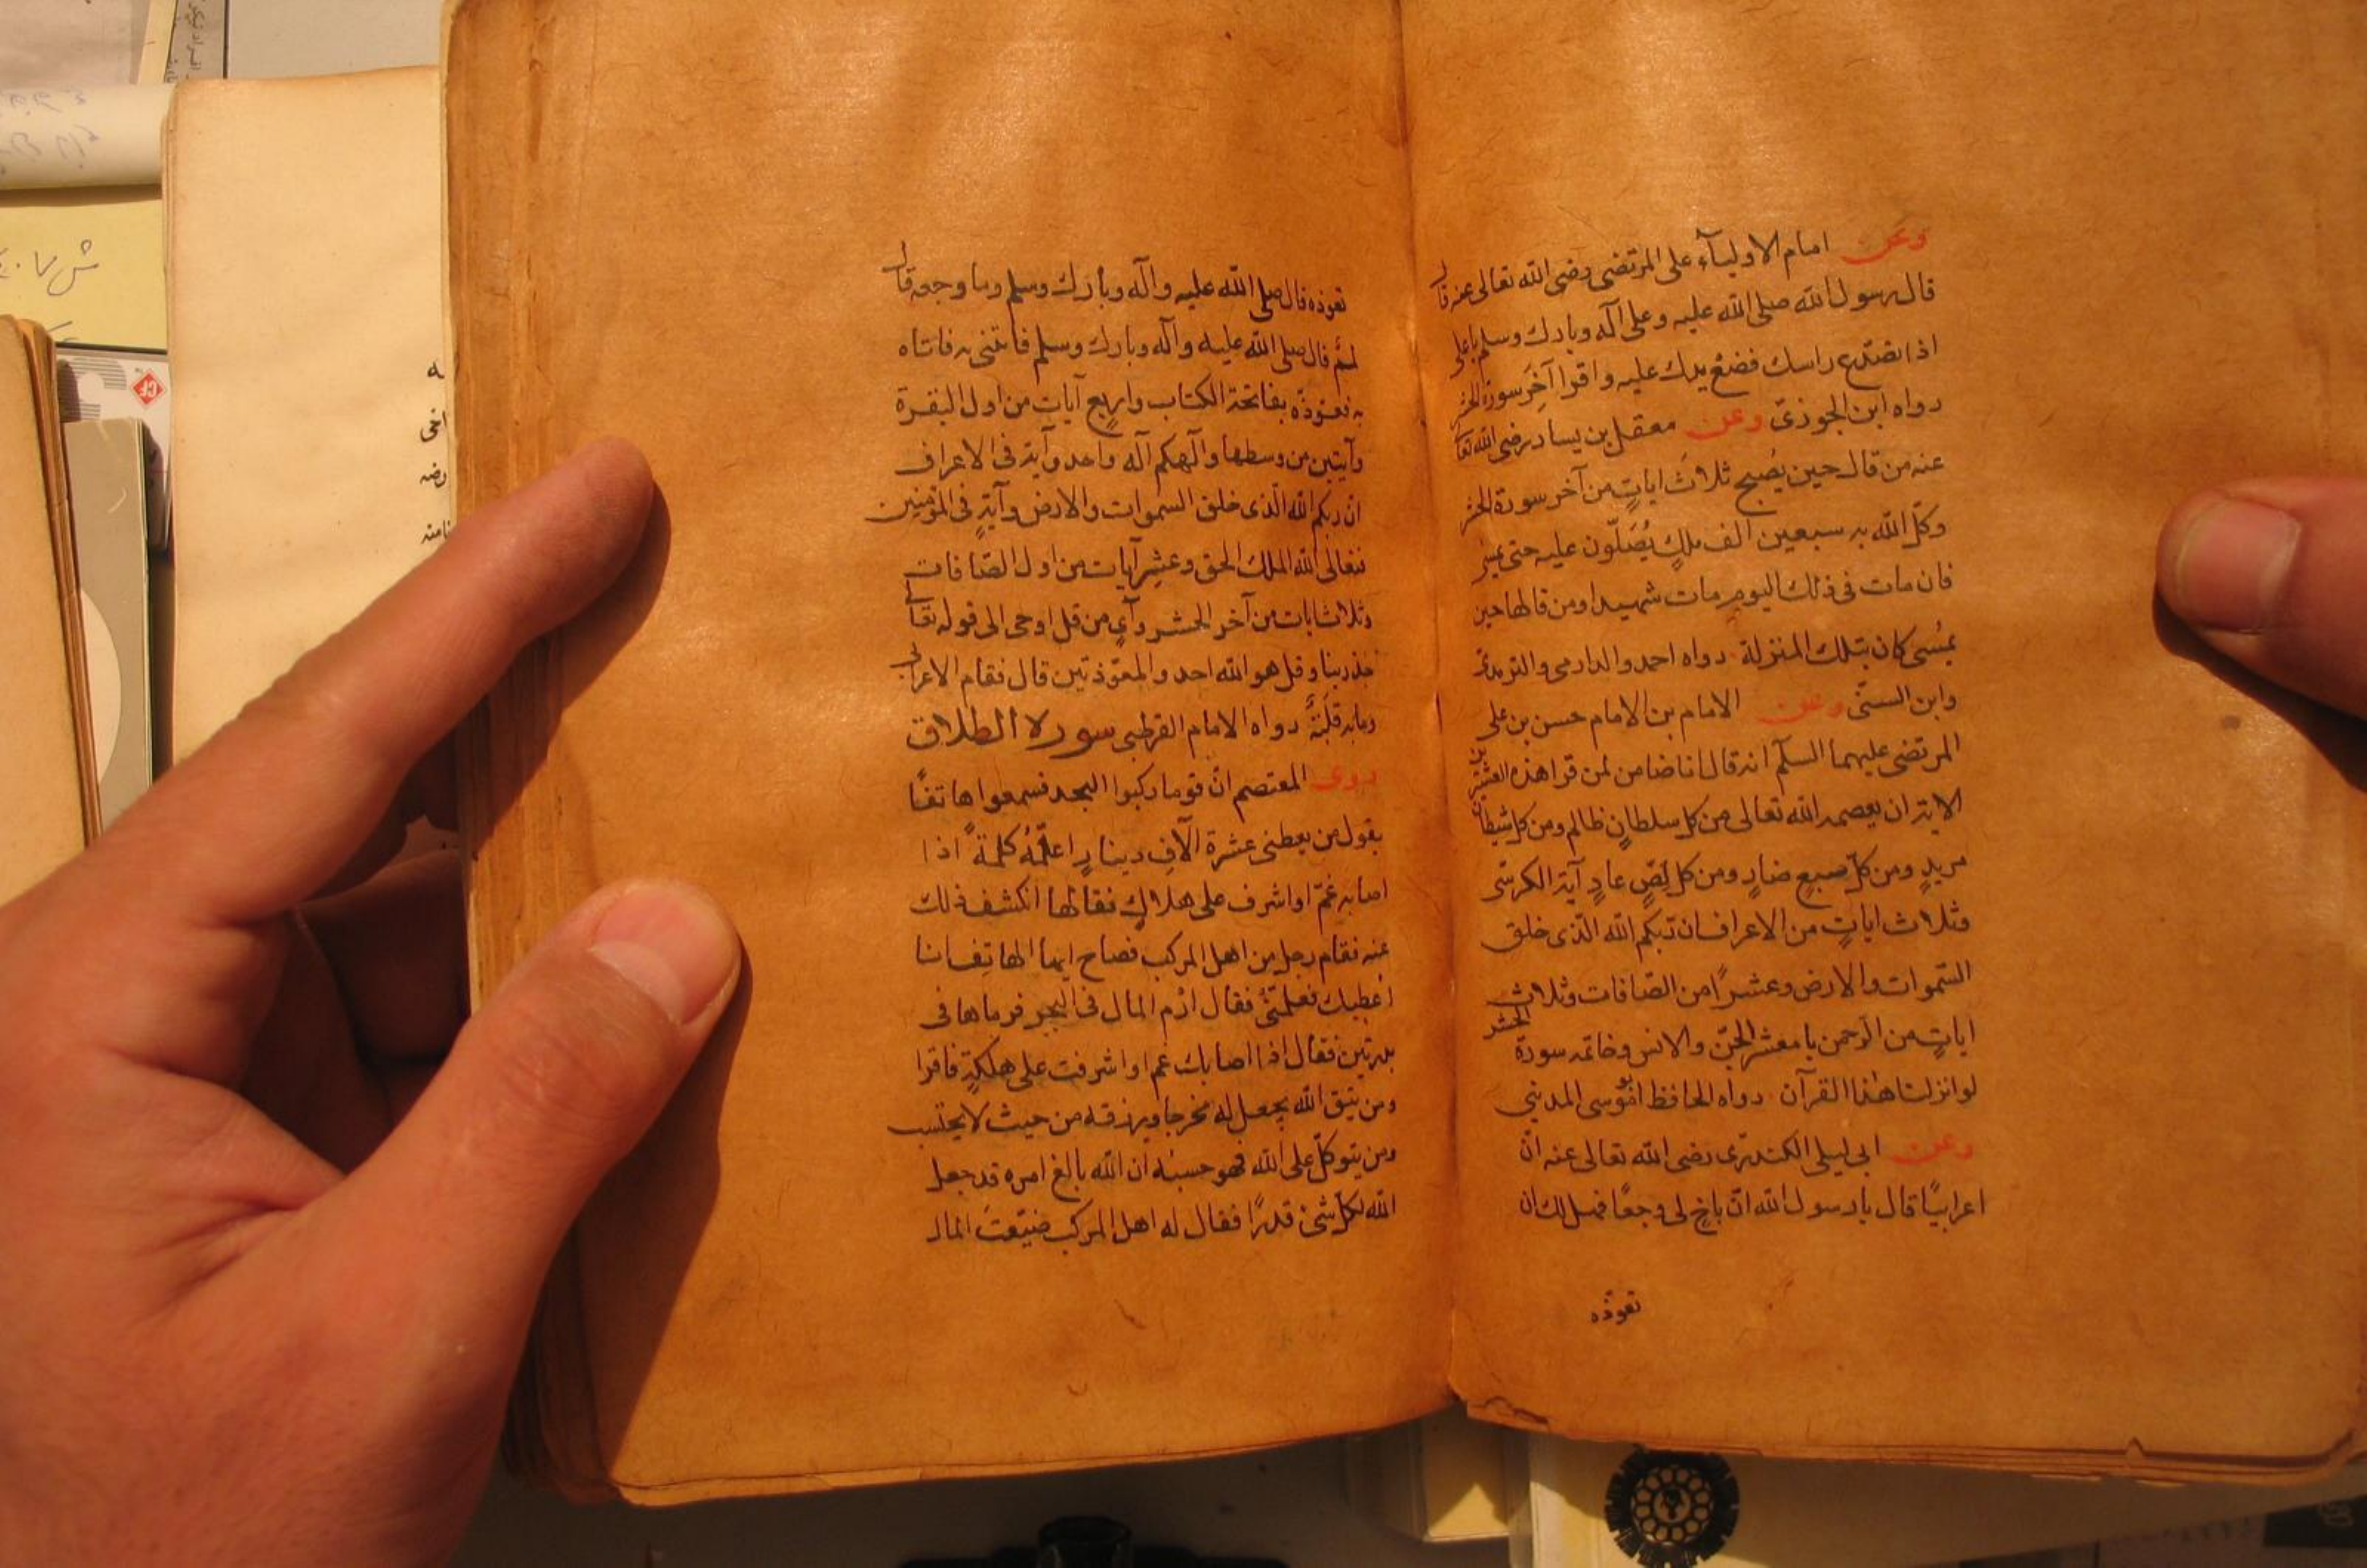 وعن امام الاوليآء على المرتضى رضى الله تعالى عنه قال
قال رسول الله صلى الله عليه وعلى آله وبارك وسلم ياعلى
اذا تصدّع راسك فضع يدك عليه واقرا آخر سورة الحشر
رواه ابن الجوزىّ وعن معقل بن يسار رضى الله تعا
عنه من قال حين يُصبح ثلاثَ اياتٍ من آخر سورة الحشر
وكّل الله به سبعين الف ملكٍ يُصَلّون عليه حتى يمسى
فان مات فى ذلك اليوم مات شهيدا ومن قالها حين
يمسُى كان بتلك المنزلة رواه احمد والدارمى والترمذى
وابن السنّى وعن الامام بن الامام حسن بن على
المرتضى عليهما السلآم انه قال انا ضامن لمن قرا هذه العشرين
الاية ان يعصمه الله تعالى من كل سلطانٍ ظالم ومن كل شيطان
مريدٍ ومن كلّ صبعٍ ضارٍ ومن كل لِصٍّ عادٍ آية الكرسّى
وثلاث اياتٍ من الاعراف ان ربّكم الله الّذى خلق
السّموات والارض وعشرًا من الصّافات وثلاث
اياتٍ من الرّحمن يا معشر الجنّ والانس وخاتمه سورة الحشر
لوانزلنا هٰذا القرآن رواه الحافظ ابوموسى المدينى
وعن ابى ليلى رضى الله تعالى عنه انّ
اعرابيًا قال يارسول الله انّ باخٍ لى وجعًا
تعوّذه
تعوذه قال صلى الله عليه وآله وبارك وسلم وما وجعه قال
لممٌ قال صلى الله عليه وآله وبارك وسلم فائتنى به فاتاه
به فعوّذه بفاتحة الكتاب واربع آياتٍ من اول البقرة
وآيتين من وسطها وآلهكم آله واحد وآية فى الاعراف
انّ ربكم الله الّذى خلق السّموات والارض وآيةٍ فى المؤمنين
فتعالى الله الملك الحق وعشِر آيات من اول الصّافات
وثلاث ايات من آخر الحشر وآىٍ من قل اوحى الى قوله تعالى
جد ربنا وقل هو الله احد والمعوّذتين قال فقام الاعرابى
وما به قلَبَةٌ رواه الامام القرطبى سورة الطلاق
روى المعتصم انّ قوما ركبوا البحر فسمعوا هاتفًا
يقول من يعطنى عشرة آلافِ دينارٍ اعلّمُهُ كلمةً اذا
اصابه غمّ اواشرف على هلاكٍ فقالها انكشف ذلك
عنه فقام رجل من اهل المركب فصاح ايها الهاتِف انا
اعطيك فعلّمنّى فقال ارْمِ المال فى البحر فرماها فى
بدرتين فقال اذا اصابك غم اواشرفت على هلكةٍ فاقرا
ومن يتق الله يجعل له مخرجا ويرزقه من حيث لايحتسب
ومن يتوكّل على الله فهو حسبُه ان الله بالغ امره قد جعل
الله لكل شئ قدرًا فقال له اهل المركب ضيّعتَ المال